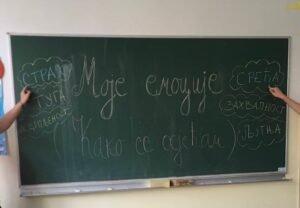 СТРАХ
ТУГА
Моје емоције
(Како се осећам)
СРЕЋА
ЗАХВАЛНОСТ
ЉУТЊА